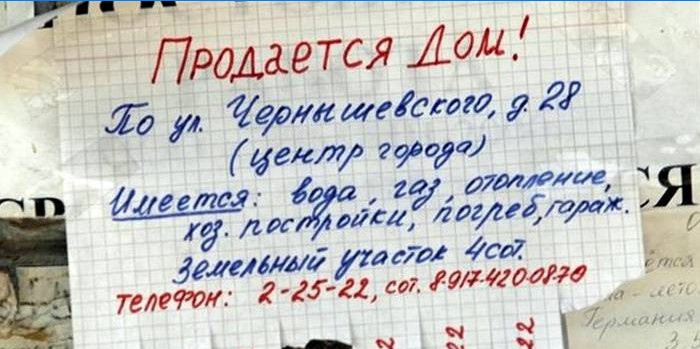 Продается Дом!
По ул. Чернышевского, д. 28
(центр города)
Имеется: вода, газ, отопление,
хоз. постройки, погреб, гараж.
Земельный участок 4 сот.
телефон: 2-25-22, сот. 8-917-420-0870
СЯ
Германия